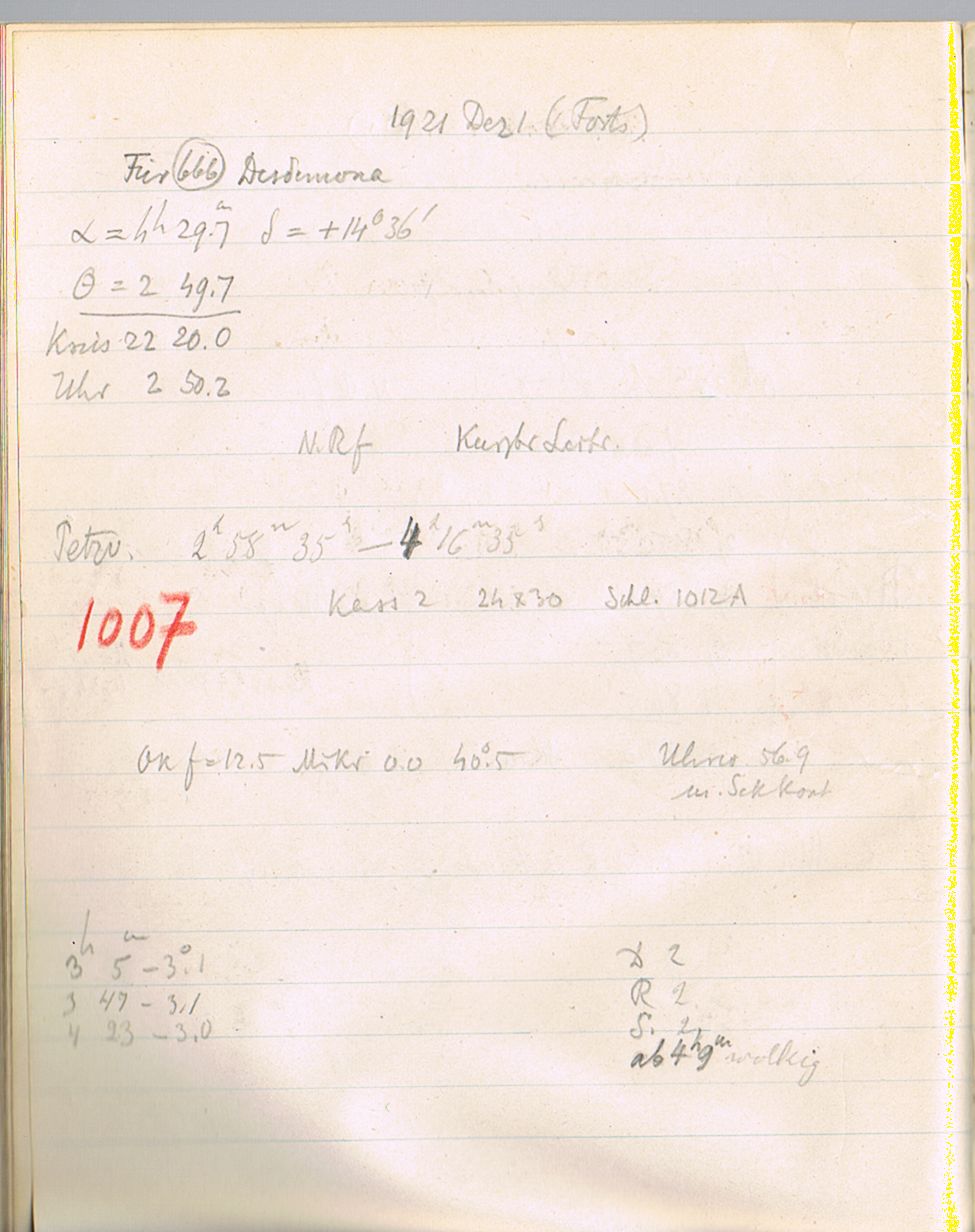 1921 Dez 1. (Forts.)
Für (666) Desdemona
α = 4h 29.7m δ = +14°36'
θ = 2 49.7
Kreis 22 20.0
Uhr 2 50.2
N. Rf
Petzv. 2h 58m 35s — 4h 16m 35s
Kass 2 24x30 Schl. 1012A
1007
OK f=12.5 Mikr 0.0 40°.5 Uhrw. 56.9
m. Sek Kont
h m
3 5 -3°.1 D 2
3 47 - 3.1 R 2
4 23 - 3.0 S. 2
ab 4h 9m wolkig